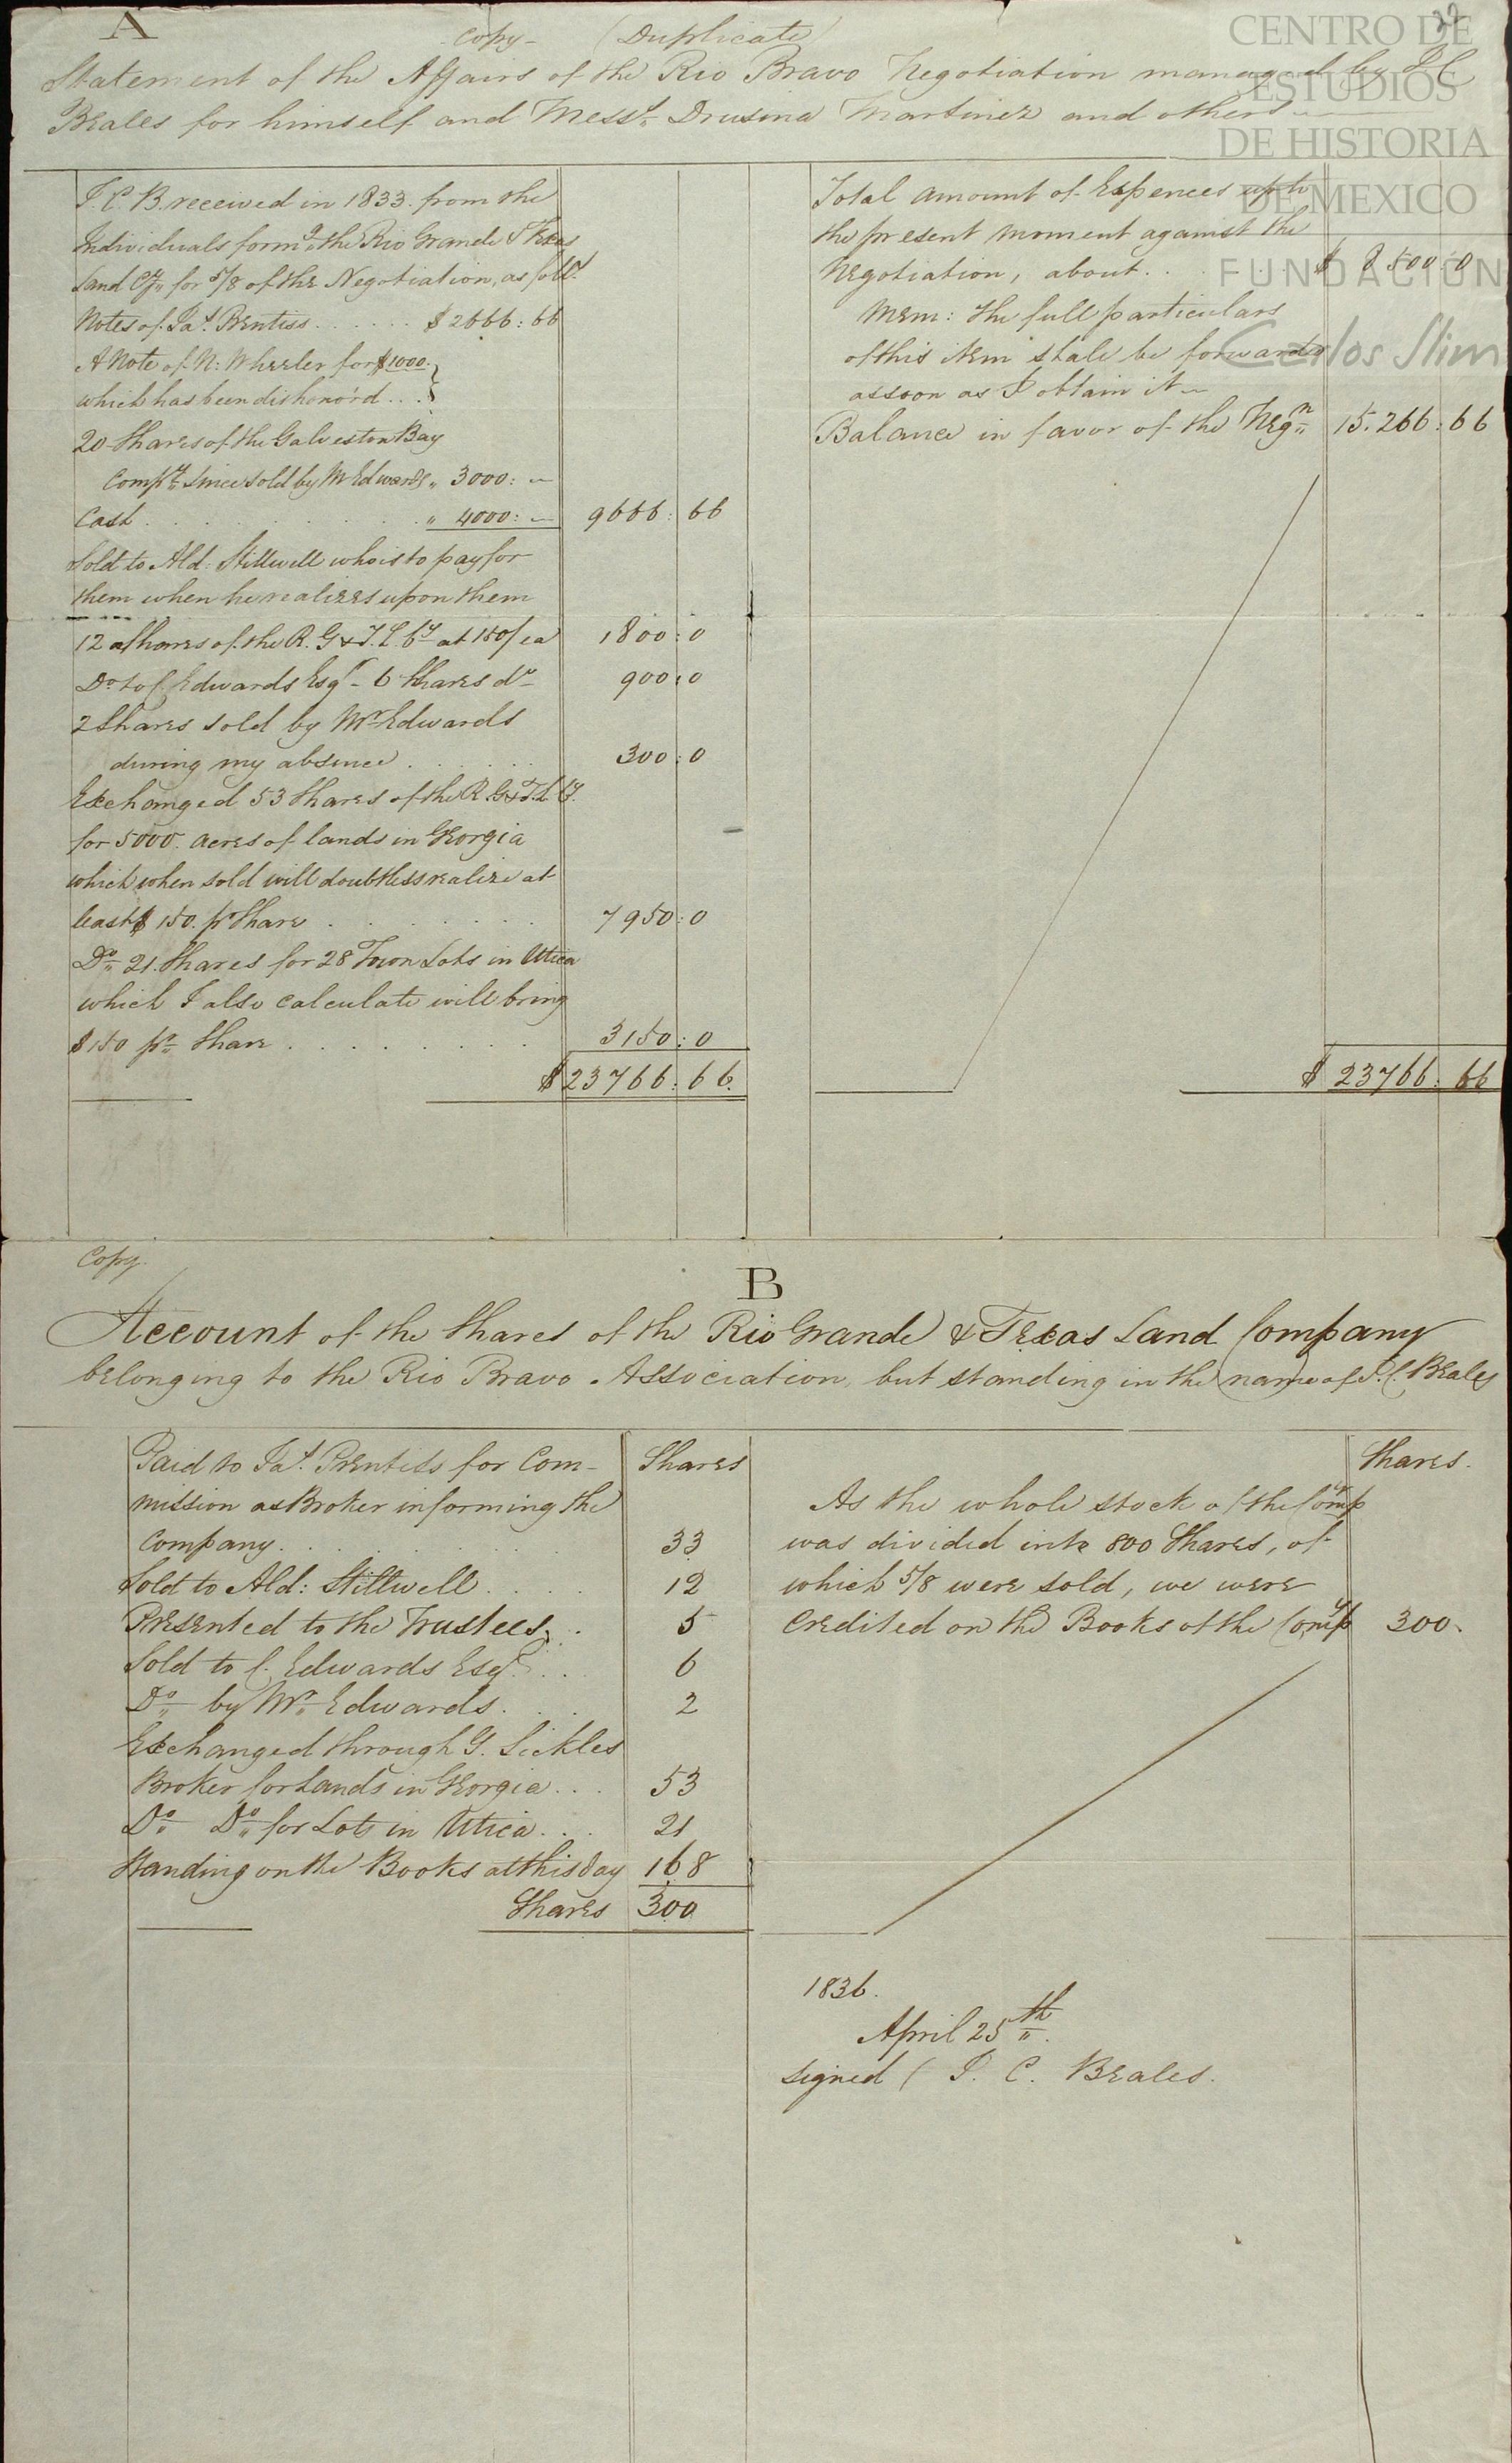 A
Copy - (Duplicate)
Statement of the Affairs of the Rio Bravo Negotiation managed by J. C.
Beales for himself and Mess.rs Drusina Martinez and others
J. C. B. received in 1833 from the
Individuals form.g the Rio Grande & Texas
Land Cy. for 5/8 of the Negotiation, as foll.s
Notes of Ja.s Prentiss . . . . . . $ 2666: 66
A Note of N: Wheeler for $1000.
which has been dishonor'd . . .
20 Shares of the Galveston Bay
Comp.y since sold by Mr Edwards „ 3000: –
Cash . . . . . . . . . . „ 4000: – 9666: 66
Sold to Ald: Stillwell who is to pay for
them when he realizes upon them
12 Shares of the R. G & T. L. Cy at 150/ ea 1800: 0
Do to C. Edwards Esqr - 6 Shares do 900: 0
2 Shares sold by Mr Edwards
during my absence . . . . . . 300: 0
Exchanged 53 Shares of the R. G & T. L Cy.
for 5000. acres of lands in Georgia
which when sold will doubtless realize at
least $ 150. pr Share . . . . . . 7950: 0
Do 21. Shares for 28 Town Lots in Utica
which I also calculate will bring
$150 pr Share . . . . . . . . 3150: 0
$ 23766: 66.
Total amount of Expences up to
the present moment against the
Negotiation, about . . . . . $ 8500: 0
Mem: the full particulars
of this item shale be forwarded
as soon as I obtain it –
Balance in favor of the Neg.n 15.266: 66
$ 23766: 66
Copy.
B
Account of the Shares of the Rio Grande & Texas Land Company
belonging to the Rio Bravo Association, but standing in the name of J. C. Beales
Shares
Paid to Ja.s Prentiss for Com-
mission as Broker in forming the
Company . . . . . . . . 33
Sold to Ald: Stillwell . . . . 12
Presented to the Trustees . . 5
Sold to C. Edwards Esqr . . . 6
Do by Mr Edwards . . . 2
Exchanged through G. Sickles
Broker for Lands in Georgia . . . 53
Do Do for Lots in Utica . . . 21
Standing on the Books at this day 168
Shares 300
Shares.
As the whole stock of the Comp.y
was divided into 800 Shares, of
which 5/8 were sold, we were
credited on the Books of the Comp.y 300.
1836.
April 25th.
signed ( J. C. Beales.
CENTRO DE
ESTUDIOS
DE HISTORIA
DE MEXICO
FUNDACIÓN
Carlos Slim